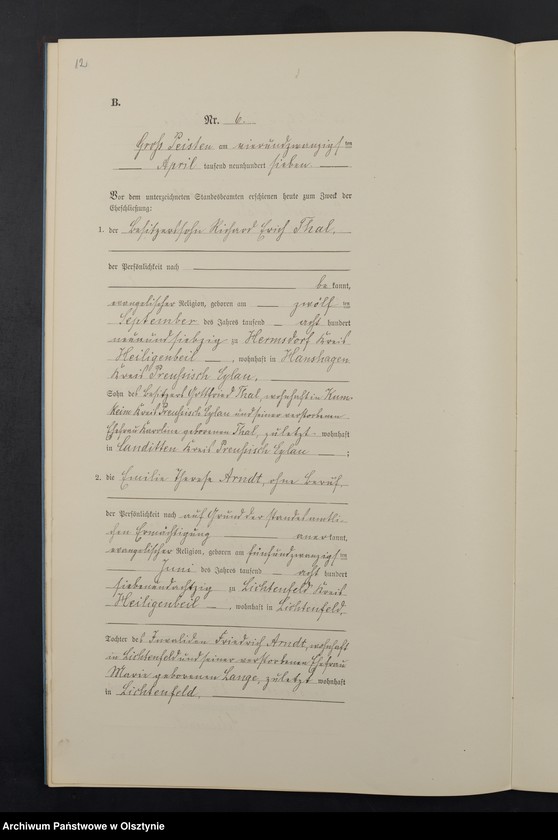 12
B.
Nr. 6.
Groß Peisten am vierundzwanzigsten
April tausend neunhundert sieben
Vor dem unterzeichneten Standesbeamten erschienen heute zum Zweck der
Eheschließung:
1. der Besitzersohn Richard Erich Thal,
der Persönlichkeit nach
be kannt,
evangelischer Religion, geboren am zwölften
September des Jahres tausend acht hundert
neunundsiebzig zu Hermsdorf Kreis
Heiligenbeil, wohnhaft in Hanshagen
Kreis Preußisch Eylau,
Sohn des Besitzers Gottfried Thal, wohnhaft in Kum-
keim Kreis Preußisch Eylau und seiner verstorbenen
Ehefrau Karoline geborenen Thal, zuletzt wohnhaft
in Landitten Kreis Preußisch Eylau ;
2. die Emilie Therese Arndt, ohne Beruf,
der Persönlichkeit nach auf Grund der standesamtli-
chen Ermächtigung aner kannt,
evangelischer Religion, geboren am fünfundzwanzigsten
Juni des Jahres tausend acht hundert
siebenundachtzig zu Lichtenfeld Kreis
Heiligenbeil, wohnhaft in Lichtenfeld,
Tochter des Invaliden Friedrich Arndt, wohnhaft
in Lichtenfeld und seiner verstorbenen Ehefrau
Marie geborenen Lange, zuletzt wohnhaft
in Lichtenfeld.
Archiwum Państwowe w Olsztynie